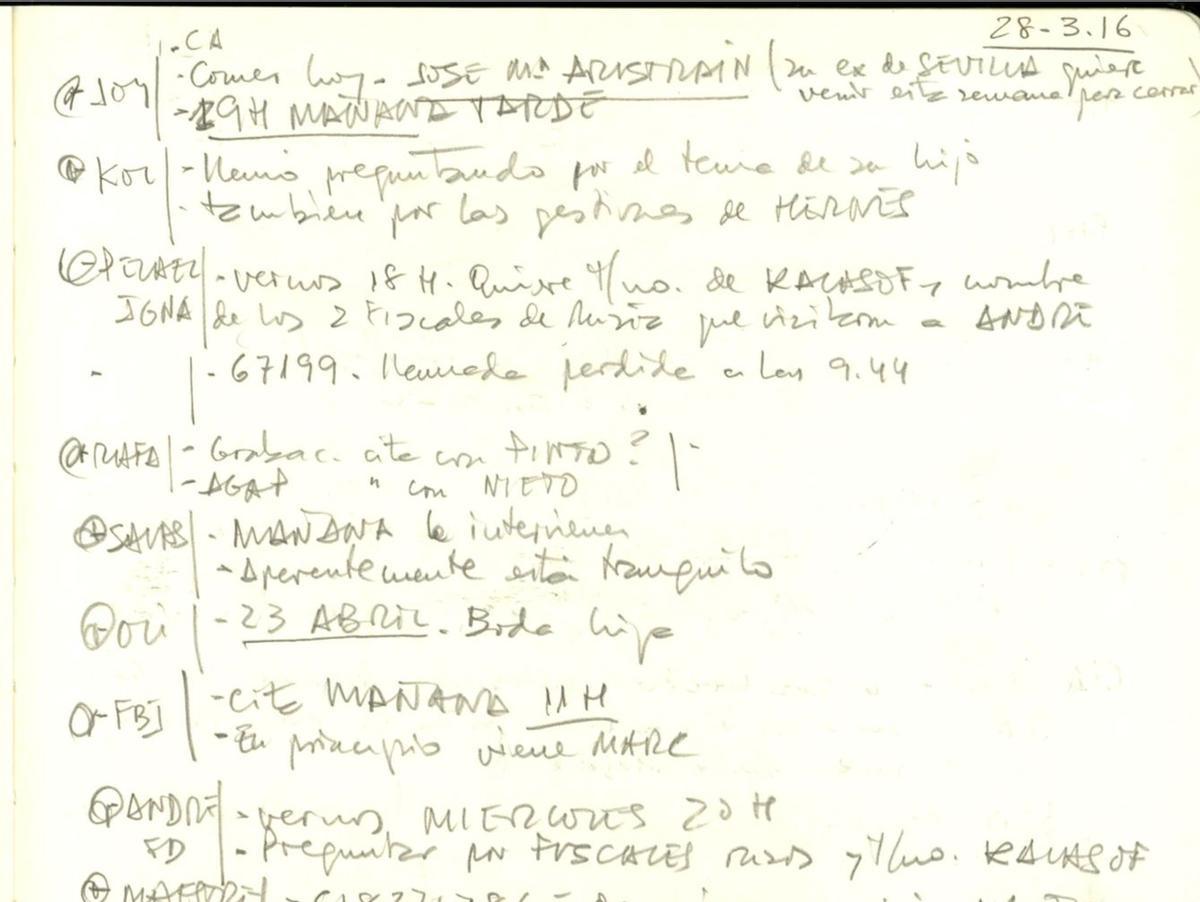 28-3.16
-CA
JOY - Comer hoy - JOSE Mª ARISTRAIN (su ex de SEVILLA quiere
venir esta semana para cerrar)
- 19H MAÑANA TARDE
KOL - Llamó preguntando por el tema de su hijo
- también por las gestiones de HERMES
PELAEZ - vernos 18 H. Quiere T/no. de KALASOF y nombre
IGNA de los 2 Fiscales de Rusia que visitaron a ANDRE
- - 67199. llamada perdida a las 9.44
RAFA - Grabac. cita con PINTO?
- AGAP " con NIETO
SALAS - MAÑANA le intervienen
- Aparentemente está tranquilo
OLI - 23 ABRIL. Boda hija
FBI - Cita MAÑANA 11 H
- En principio viene MARC
ANDRE - vernos MIERCOLES 20 H
FD - Preguntar por FISCALES rusos y T/no. KALASOF